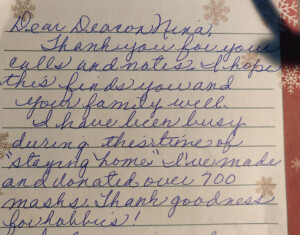 Dear Deacon Nina,
Thank you for your
calls and notes. I hope
this finds you and
your family well.
I have been busy
during this time of
"staying home" I've made
and donated over 700
masks. Thank goodness
for hobbies!